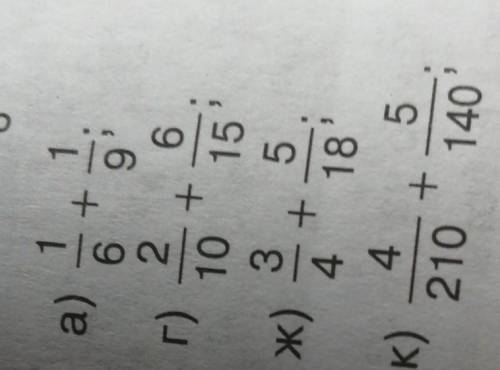 а) 1/6 + 1/9;
г) 2/10 + 6/15;
ж) 3/4 + 5/18;
к) 4/210 + 5/140;